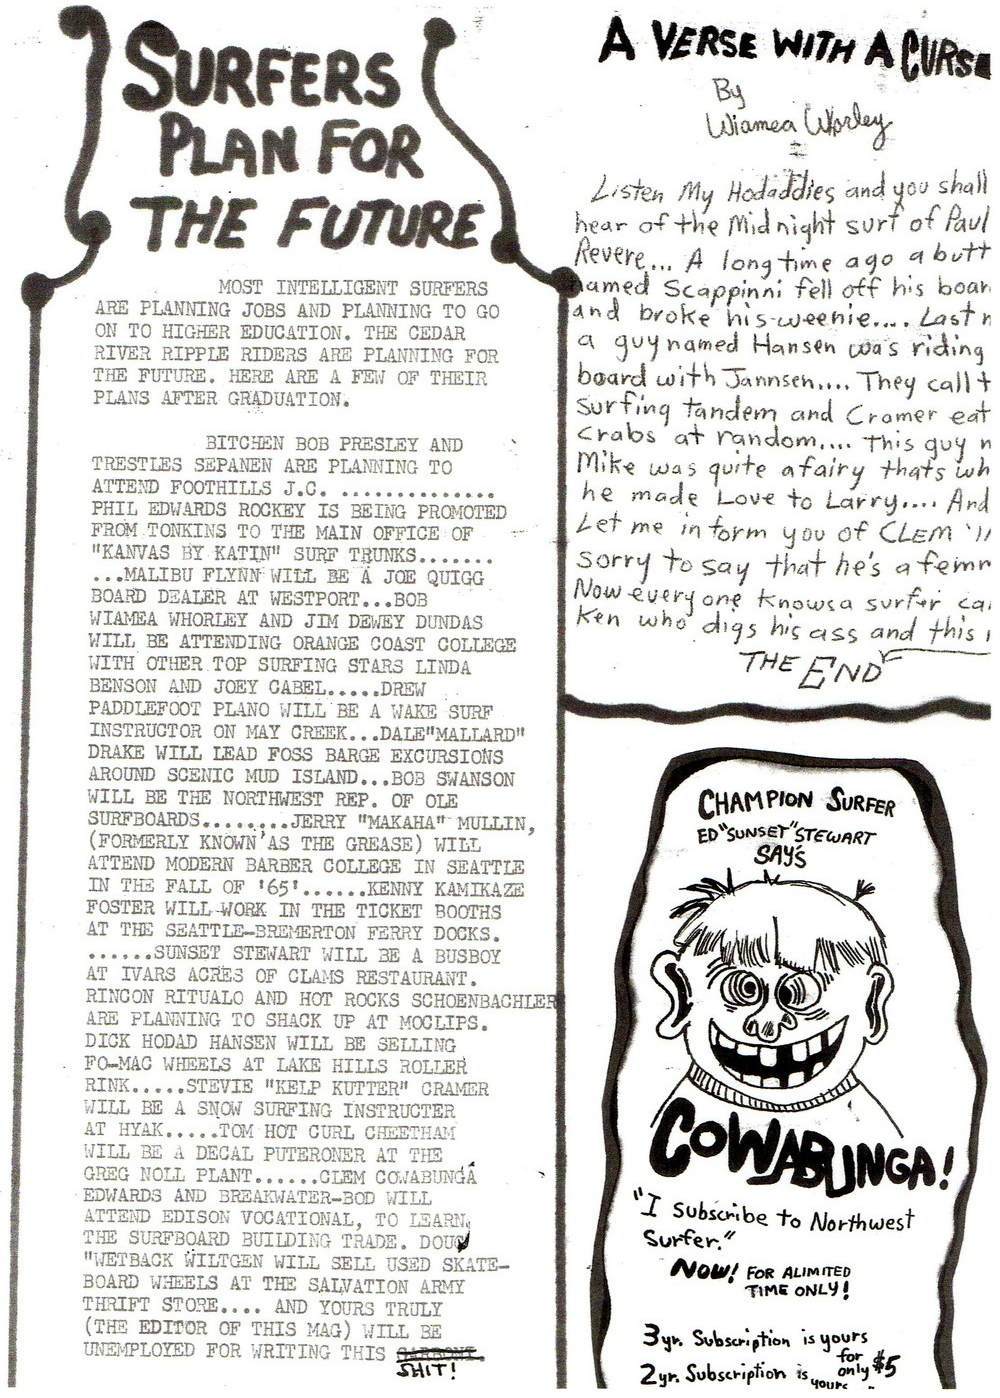 SURFERS
PLAN FOR
THE FUTURE
MOST INTELLIGENT SURFERS
ARE PLANNING JOBS AND PLANNING TO GO
ON TO HIGHER EDUCATION. THE CEDAR
RIVER RIPPLE RIDERS ARE PLANNING FOR
THE FUTURE. HERE ARE A FEW OF THEIR
PLANS AFTER GRADUATION.
BITCHEN BOB PRESLEY AND
TRESTLES SEPANEN ARE PLANNING TO
ATTEND FOOTHILLS J.C. ..............
PHIL EDWARDS ROCKEY IS BEING PROMOTED
FROM TONKINS TO THE MAIN OFFICE OF
"KANVAS BY KATIN" SURF TRUNKS.......
...MALIBU FLYNN WILL BE A JOE QUIGG
BOARD DEALER AT WESTPORT...BOB
WIAMEA WHORLEY AND JIM DEWEY DUNDAS
WILL BE ATTENDING ORANGE COAST COLLEGE
WITH OTHER TOP SURFING STARS LINDA
BENSON AND JOEY CABEL.....DREW
PADDLEFOOT PLANO WILL BE A WAKE SURF
INSTRUCTOR ON MAY CREEK...DALE"MALLARD"
DRAKE WILL LEAD FOSS BARGE EXCURSIONS
AROUND SCENIC MUD ISLAND...BOB SWANSON
WILL BE THE NORTHWEST REP. OF OLE
SURFBOARDS........JERRY "MAKAHA" MULLIN,
(FORMERLY KNOWN AS THE GREASE) WILL
ATTEND MODERN BARBER COLLEGE IN SEATTLE
IN THE FALL OF '65'......KENNY KAMIKAZE
FOSTER WILL WORK IN THE TICKET BOOTHS
AT THE SEATTLE-BREMERTON FERRY DOCKS.
......SUNSET STEWART WILL BE A BUSBOY
AT IVARS ACRES OF CLAMS RESTAURANT.
RINCON RITUALO AND HOT ROCKS SCHOENBACHLER
ARE PLANNING TO SHACK UP AT MOCLIPS.
DICK HODAD HANSEN WILL BE SELLING
FO-MAC WHEELS AT LAKE HILLS ROLLER
RINK.....STEVIE "KELP KUTTER" CRAMER
WILL BE A SNOW SURFING INSTRUCTER
AT HYAK.....TOM HOT CURL CHEETHAM
WILL BE A DECAL PUTERONER AT THE
GREG NOLL PLANT......CLEM COWABUNGA
EDWARDS AND BREAKWATER-BOD WILL
ATTEND EDISON VOCATIONAL, TO LEARN
THE SURFBOARD BUILDING TRADE. DOUG
"WETBACK WILTGEN WILL SELL USED SKATE-
BOARD WHEELS AT THE SALVATION ARMY
THRIFT STORE.... AND YOURS TRULY
(THE EDITOR OF THIS MAG) WILL BE
UNEMPLOYED FOR WRITING THIS
SHIT!
A VERSE WITH A CURS
By
Wiamea Whorley
Listen My Hodaddies and you shall
hear of the Midnight surf of Paul
Revere... A long time ago a butt
named Scappinni fell off his boar
and broke his weenie.... Last n
a guy named Hansen was riding
board with Jannsen.... They call t
surfing tandem and Cramer eat
crabs at random.... This guy n
Mike was quite a fairy thats wh
he made Love to Larry.... And
Let me inform you of CLEM
sorry to say that he's a femn
Now everyone knows a surfer ca
Ken who digs his ass and this i
THE END
CHAMPION SURFER
ED "SUNSET" STEWART
SAY'S
COWABUNGA!
"I subscribe to Northwest
Surfer."
NOW! FOR A LIMITED
TIME ONLY!
3 yr. Subscription is yours
for
only $5
2 yr. Subscription is
yours